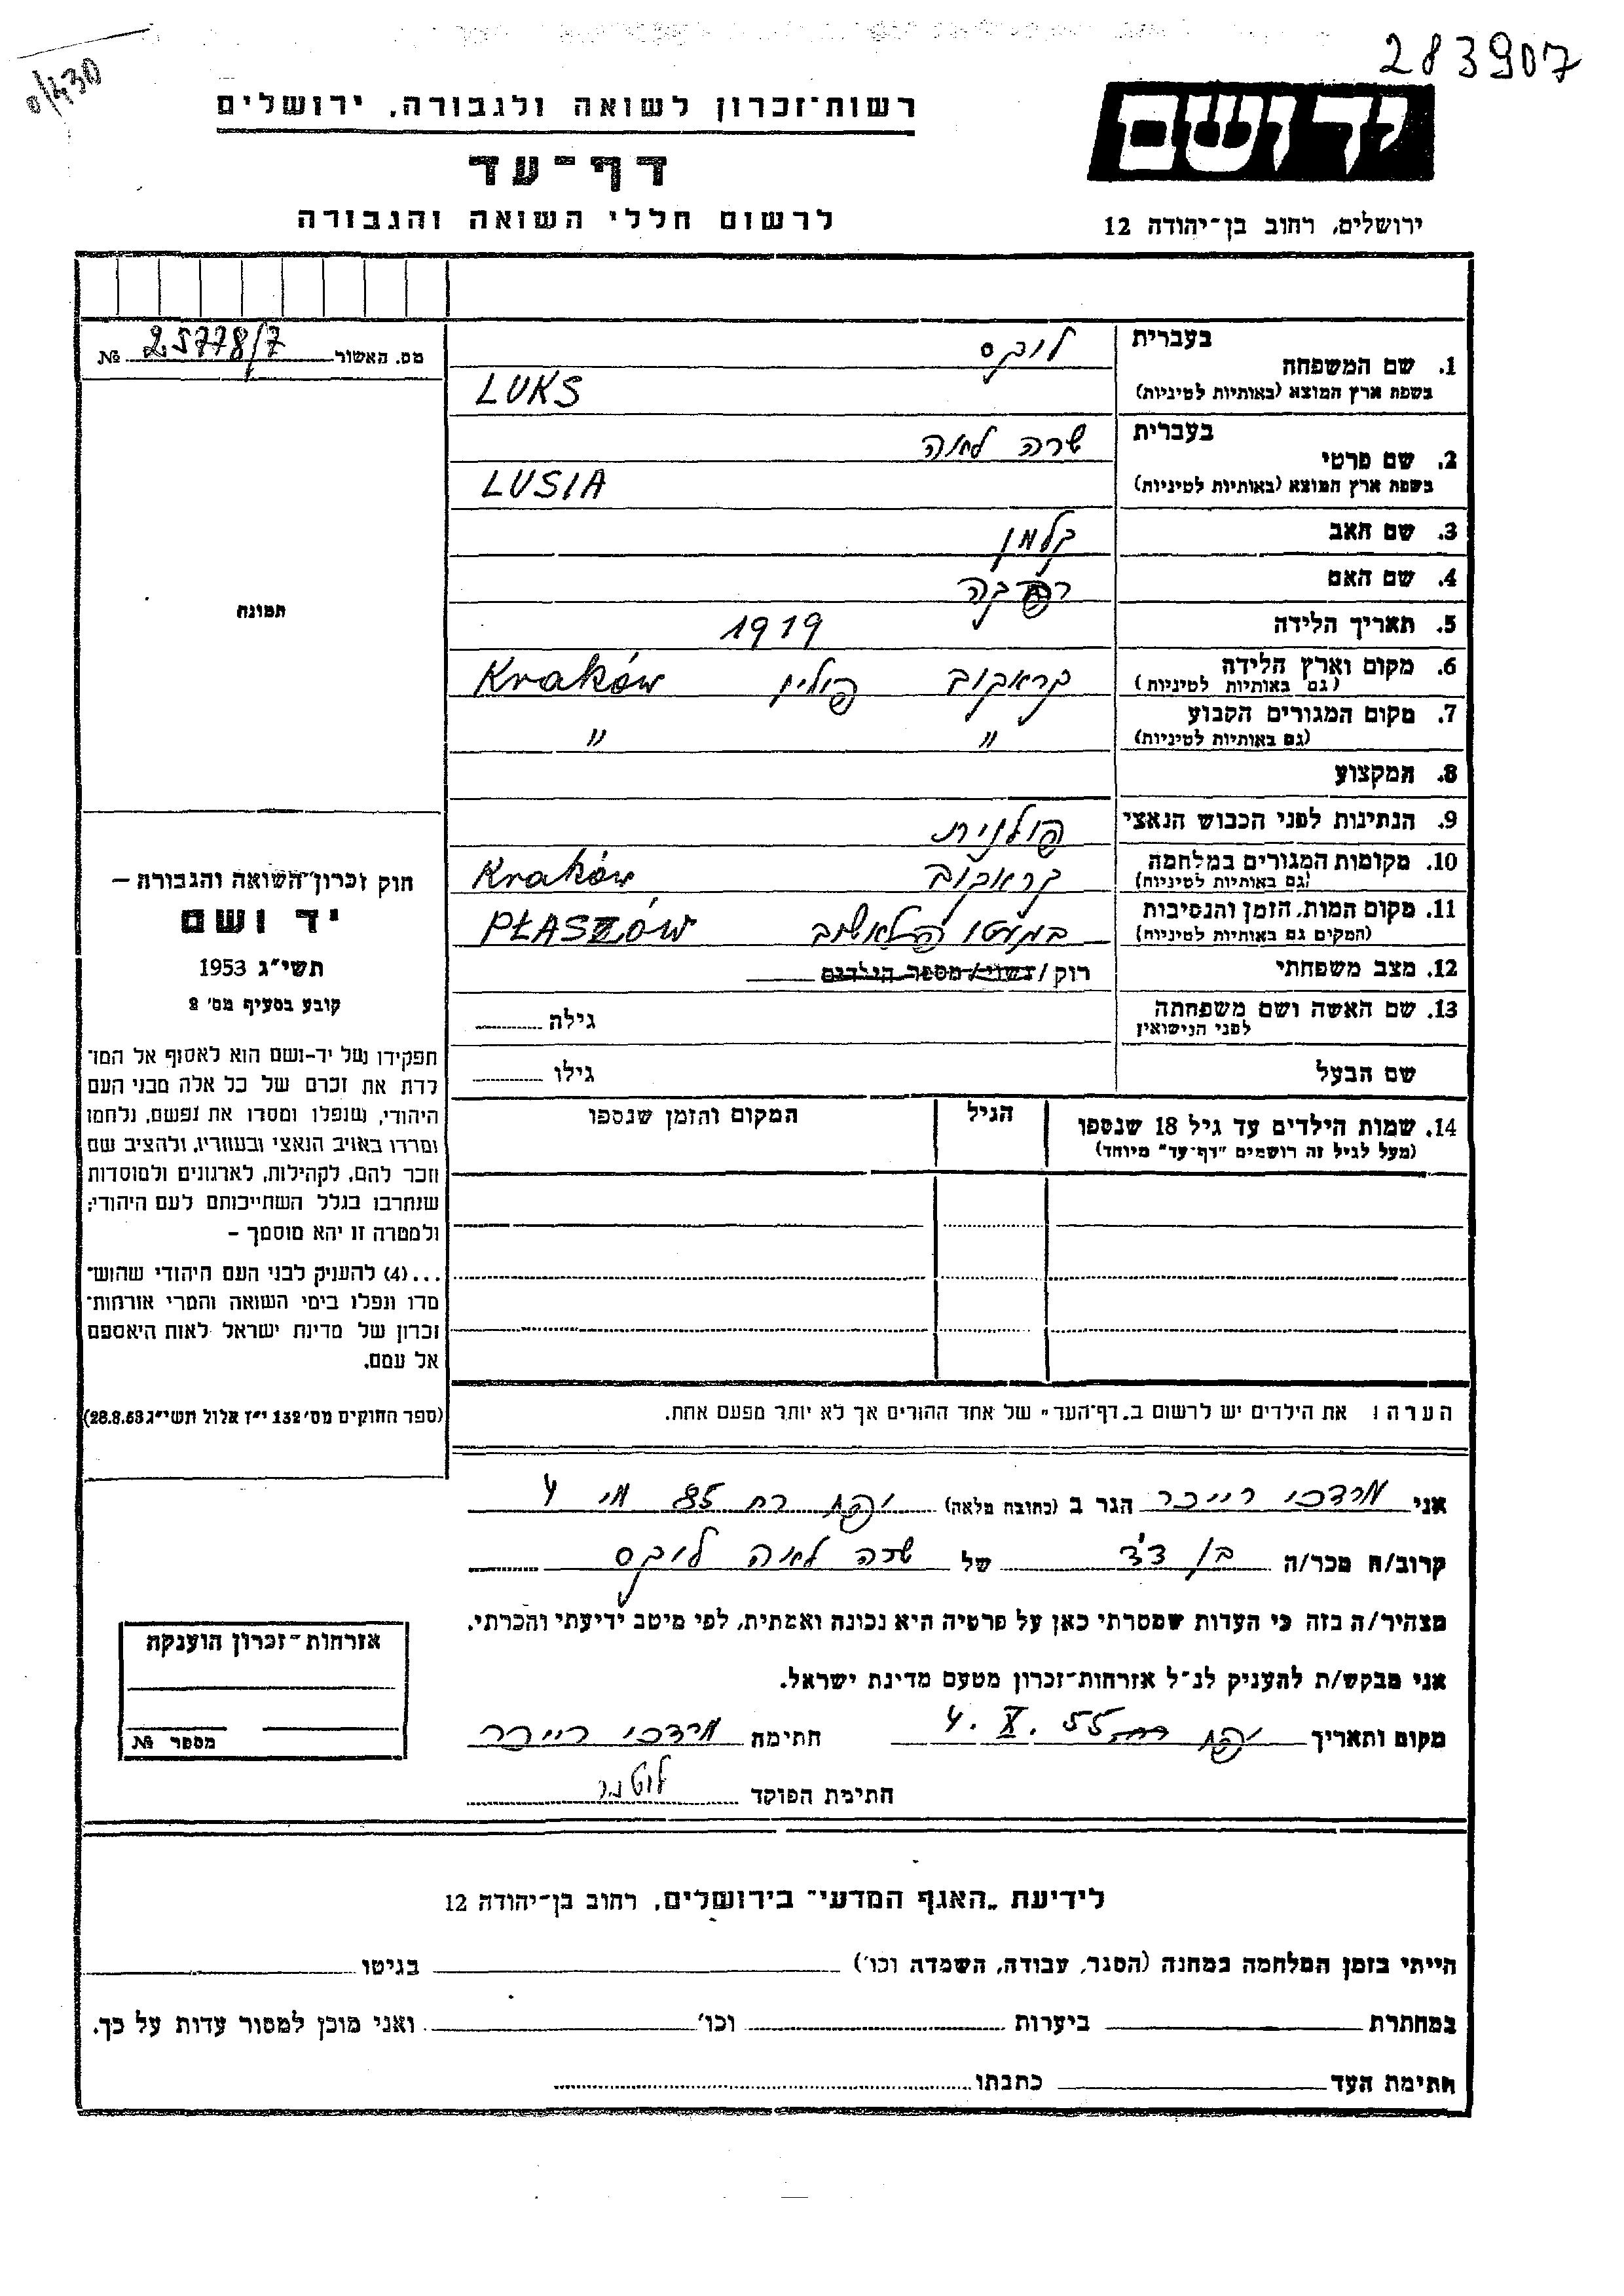 283907
0/430
רשות־זכרון לשואה ולגבורה, ירושלים
דף־עד
לרשום חללי השואה והגבורה
יד ושם
ירושלים, רחוב בן־יהודה 12
מס. האשור 25778/7 №
תמונה
1. שם המשפחה
בעברית לוקס
בשפת ארץ המוצא (באותיות לטיניות) LUKS
2. שם פרטי
בעברית שרה לאה
בשפת ארץ המוצא (באותיות לטיניות) LUSIA
3. שם האב קלמן
4. שם האם
5. תאריך הלידה 1919
6. מקום וארץ הלידה קראקוב פולין Kraków
(גם באותיות לטיניות)
7. מקום המגורים הקבוע " "
(גם באותיות לטיניות)
8. המקצוע
9. הנתינות לפני הכבוש הנאצי פולנית
10. מקומות המגורים במלחמה קראקוב Kraków
(גם באותיות לטיניות)
11. מקום המות, הזמן והנסיבות פלאשוב PŁASZÓW
(המקום גם באותיות לטיניות)
12. מצב משפחתי רוק / נשוי / מספר הילדים
13. שם האשה ושם משפחתה גילה
לפני הנישואין
שם הבעל גילו
14. שמות הילדים עד גיל 18 שנספו הגיל המקום והזמן שנספו
(מעל לגיל זה רושמים "דף־עד" מיוחד)
הערה: את הילדים יש לרשום ב„דף־העד" של אחד ההורים אך לא יותר מפעם אחת.
חוק זכרון־השואה והגבורה –
יד ושם
תשי״ג 1953
קובע בסעיף מס׳ 2
תפקידו של יד-ושם הוא לאסוף אל המו־
לדת את זכרם של כל אלה מבני העם
היהודי, שנפלו ומסרו את נפשם, נלחמו
ומרדו באויב הנאצי ובעוזריו, ולהציב שם
וזכר להם, לקהילות, לארגונים ולמוסדות
שנחרבו בגלל השתייכותם לעם היהודי;
ולמטרה זו יהא מוסמך –
...(4) להעניק לבני העם היהודי שהוש־
מדו ונפלו בימי השואה והמרי אזרחות־
זכרון של מדינת ישראל לאות היאספם
אל עמם.
(ספר החוקים מס׳ 132 י״ז אלול תשי״ג 28.8.53)
אני מרדכי רייכר הגר ב (כתובת מלאה) יפו רח 85 מס 4
קרוב/ה מכר/ה בן דוד של שרה לאה לוקס
מצהיר/ה בזה כי העדות שמסרתי כאן על פרטיה היא נכונה ואמתית, לפי מיטב ידיעתי והכרתי.
אני מבקש/ת להעניק לנ״ל אזרחות־זכרון מטעם מדינת ישראל.
מקום ותאריך יפו 4.X.55 חתימה מרדכי רייכר
חתימת הפוקד
אזרחות־זכרון הוענקה
מספר №
לידיעת „האגף המדעי" בירושלים, רחוב בן־יהודה 12
הייתי בזמן המלחמה במחנה (הסגר, עבודה, השמדה וכו׳) בגיטו
במחתרת ביערות וכו׳ ואני מוכן למסור עדות על כך.
חתימת העד כתבתו